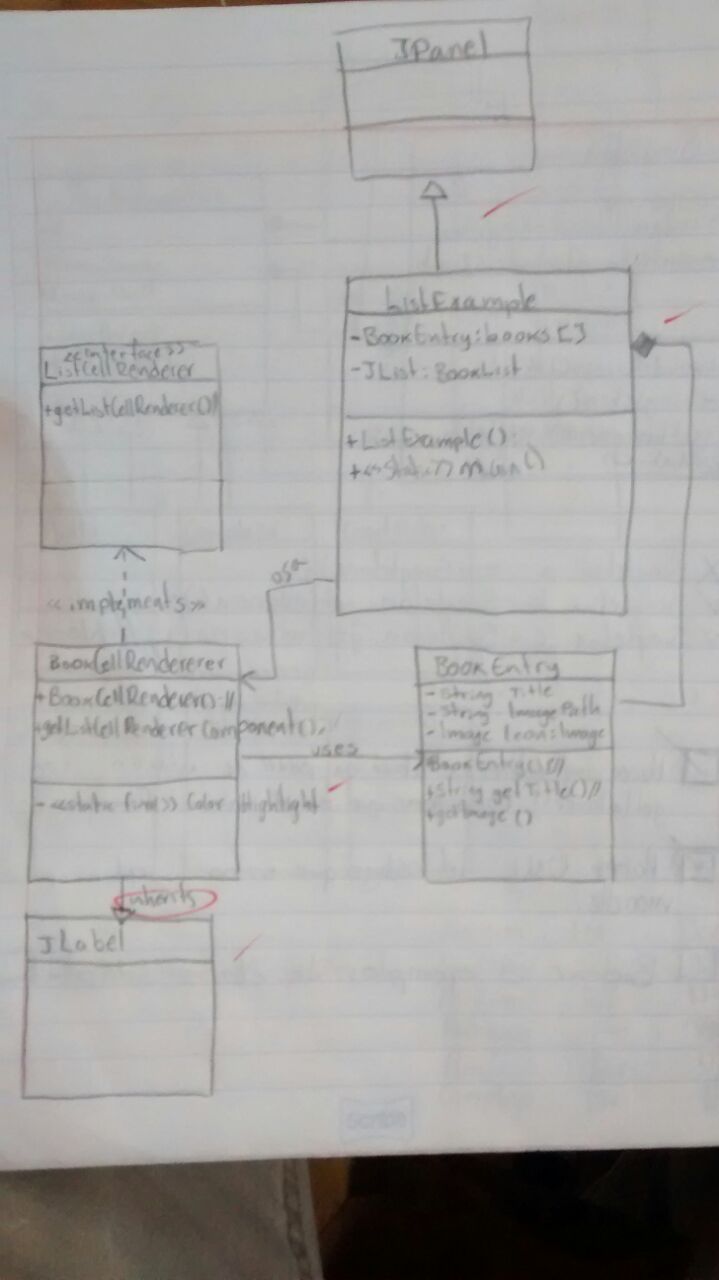 JPanel
ListExample
-BookEntry:books[]
-JList:BookList
+ListExample()
+<<static>>main()
<<interface>>
ListCellRenderer
+getListCellRenderer()//
use
<<implements>>
BookCellRendererer
+BookCellRenderer()://
+getListCellRendererComponent();
-<<static final>> Color Highlight
uses
BookEntry
-String Title
-String ImagePath
-Image Icon:Image
BookEntry(){//
+String getTitle()//
+getImage()
inherits
JLabel